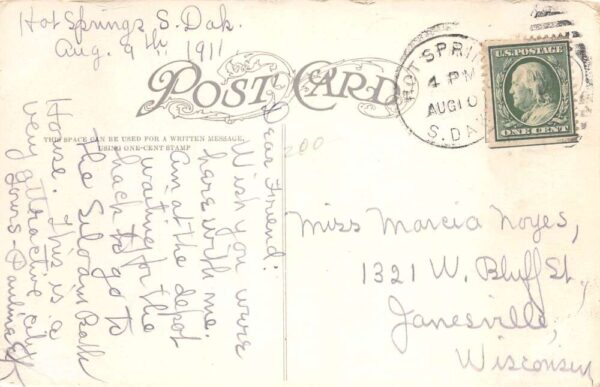 Hot Springs, S. Dak.
Aug. 9th, 1911
POST CARD
THIS SPACE CAN BE USED FOR A WRITTEN MESSAGE,
USING ONE-CENT STAMP
HOT SPRIN
4 PM
AUG 10
S. DAK
U.S. POSTAGE
ONE CENT
200
Dear Friend:
Wish you were
here with me.
Am at the depot
waiting for the
hack to go to
the Siloam Bath
House. This is a
very attractive city
Yours - Pauline
Miss Marcia Noyes,
1321 W. Bluff St.
Janesville,
Wisconsin